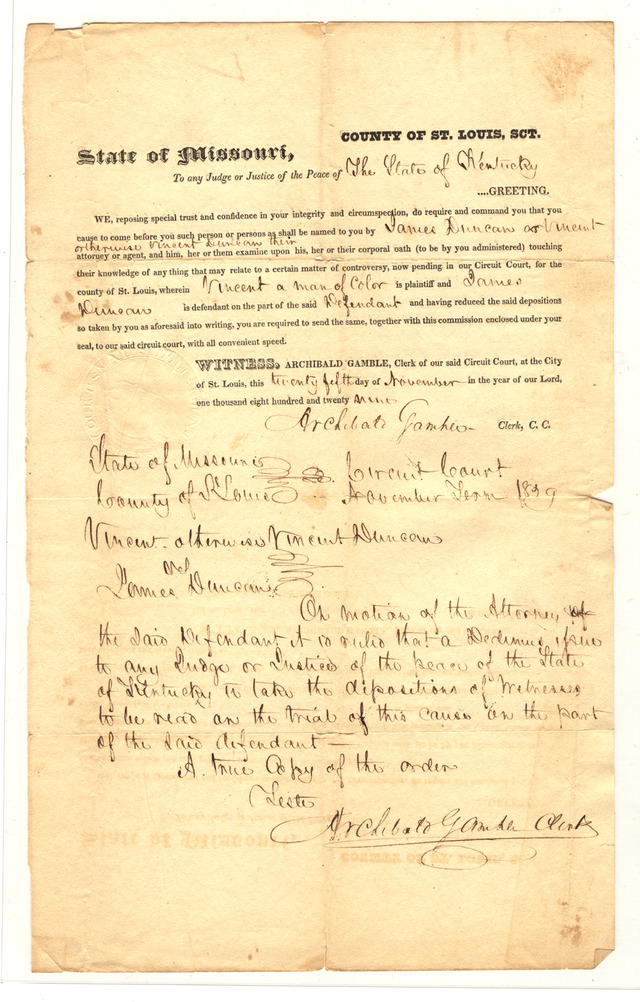 COUNTY OF ST. LOUIS, SCT.
State of Missouri,
To any Judge or Justice of the Peace of The State of Kentucky
....GREETING.
WE, reposing special trust and confidence in your integrity and circumspection, do require and command you that you
cause to come before you such person or persons as shall be named to you by James Duncan or Vincent
otherwise Vincent Duncan their
attorney or agent, and him, her or them examine upon his, her or their corporal oath (to be by you administered) touching
their knowledge of any thing that may relate to a certain matter of controversy, now pending in our Circuit Court, for the
county of St. Louis, wherein Vincent a man of Color is plaintiff and James
Duncan is defendant on the part of the said Defendant and having reduced the said depositions
so taken by you as aforesaid into writing, you are required to send the same, together with this commission enclosed under your
seal, to our said circuit court, with all convenient speed.
WITNESS, ARCHIBALD GAMBLE, Clerk of our said Circuit Court, at the City
of St. Louis, this twenty fifth day of November in the year of our Lord,
one thousand eight hundred and twenty nine
Archibald Gamble Clerk, C. C.
State of Missouri Circuit Court
County of St Louis November Term 1829
Vincent otherwise Vincent Duncan
vs
James Duncan
On motion of the Attorney of
the said Defendant it is ruled that a Dedimus issue
to any Judge or Justice of the peace of the State
of Kentucky to take the depositions of Witnesses
to be read on the trial of this cause on the part
of the said defendant —
A true Copy of the order
Teste
Archibald Gamble Clerk